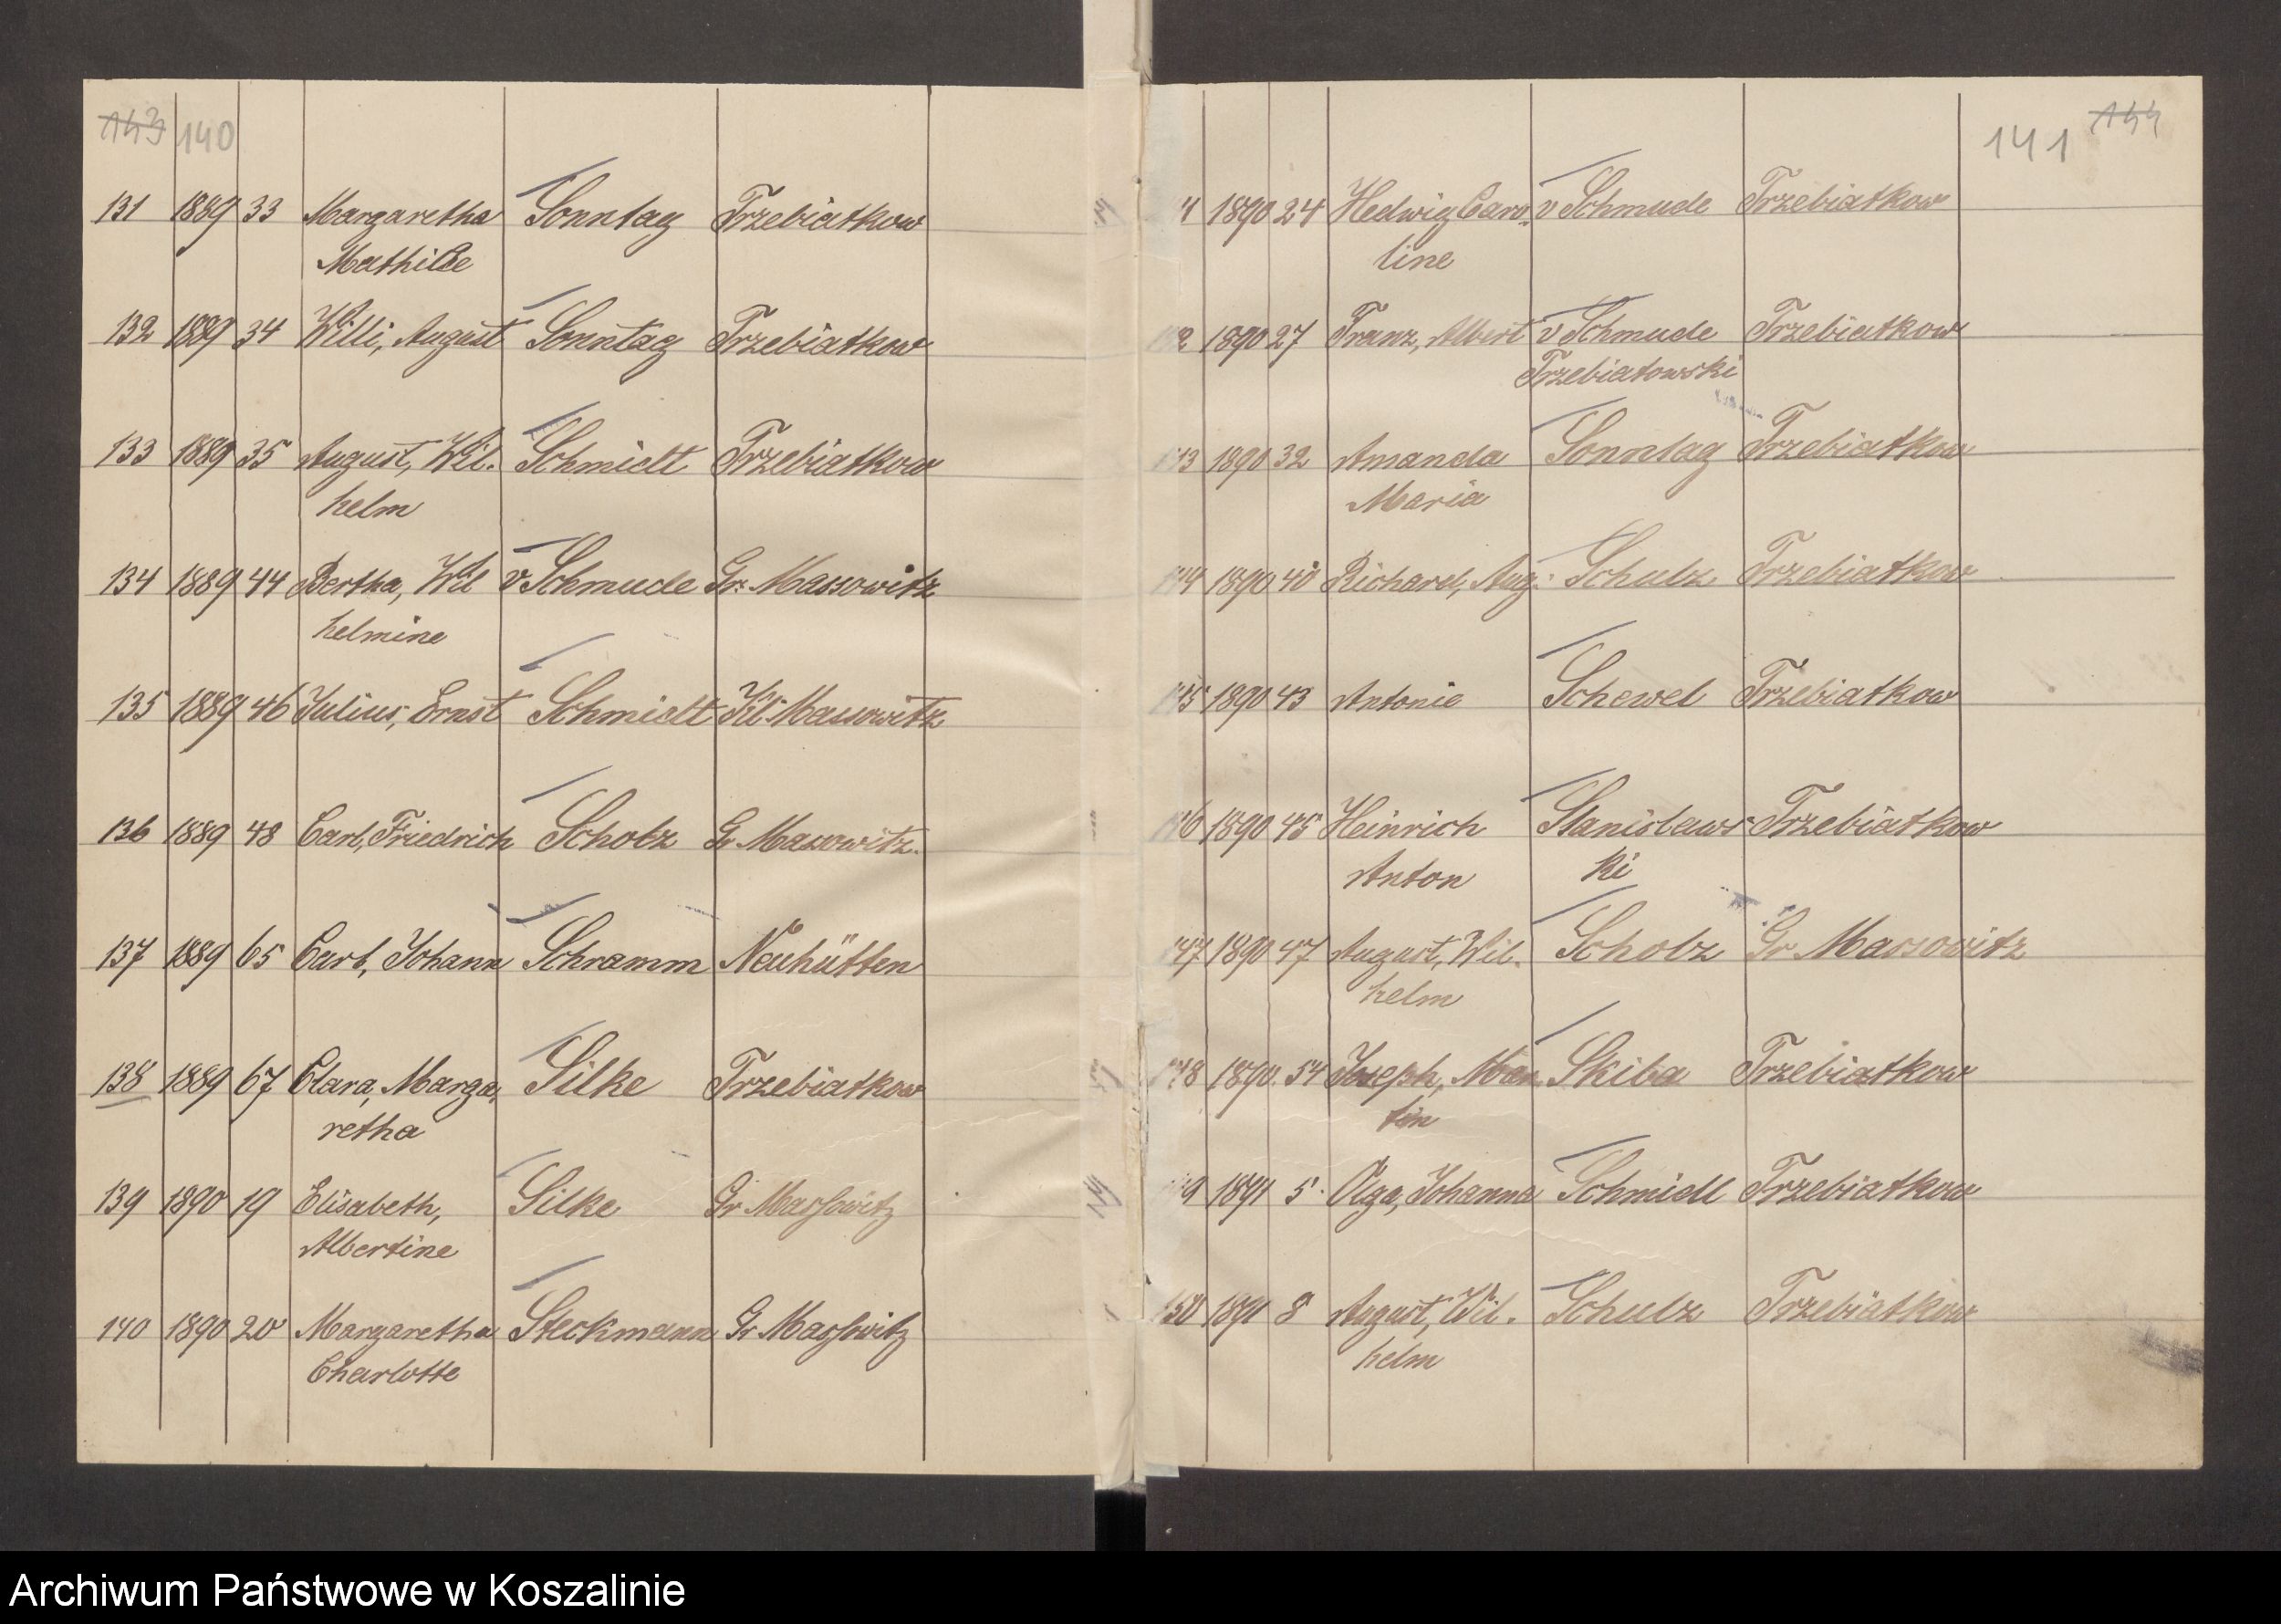 143 140
131 1889 33 Margaretha Sonntag Trzebiatkow
Mathilde
132 1889 34 Willi, August Sonntag Trzebiatkow
133 1889 35 August, Wil- Schmidt Trzebiatkow
helm
134 1889 44 Bertha, Wil v Schmude Gr. Massowitz
helmine
135 1889 46 Julius, Ernst Schmidt Kl Massowitz
136 1889 48 Carl, Friedrich Scholz Gr Massowitz.
137 1889 65 Carl, Johann Schramm Neuhütten
138 1889 67 Clara, Marga- Silke Trzebiatkow
retha
139 1890 19 Elisabeth, Silke Gr Massowitz
Albertine
140 1890 20 Margaretha Steckmann Gr Massowitz
Charlotte
141 144
1 1890 24 Hedwig Caro- v Schmude Trzebiatkow
line
2 1890 27 Franz, Albert v Schmude Trzebiatkow
Trzebiatowski
143 1890 32 Amanda Sonntag Trzebiatkow
Maria
144 1890 40 Richard, Aug. Schulz Trzebiatkow
145 1890 43 Antonie Schewel Trzebiatkow
146 1890 45 Heinrich Stanislaws- Trzebiatkow
Anton ki
147 1890 47 August, Wil- Scholz Gr Massowitz
helm
148 1890 54 Joseph, Mar- Skiba Trzebiatkow
tin
9 1891 5 Olga, Johanna Schmidt Trzebiatkow
150 1891 8 August, Wil- Schulz Trzebiatkow
helm
Archiwum Państwowe w Koszalinie